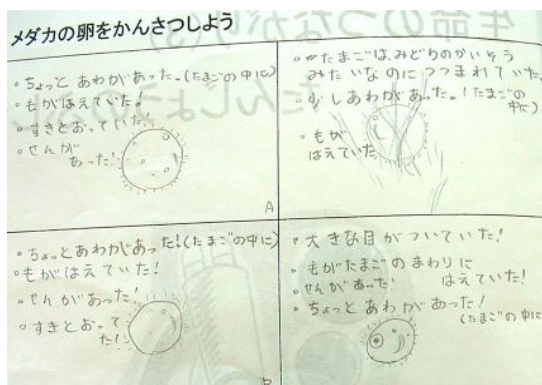 メダカの卵をかんさつしよう
・ちょっとあわがあった。(たまごの中に)
・もがはえていた!
・すきとおっていた!
・せんが
あった!
A
・たまごは、みどりのかいそう
みたいなのにつつまれていた。
・少しあわがあった。(たまごの
中に)
・もが
はえていた
・ちょっとあわがあった!(たまごの中に)
・もがはえていた!
・せんがあった!
・すきとおって
た!
B
・大きな目がついていた!
・もがたまごのまわりに
はえていた!
・せんがあった!
・ちょっとあわがあった!
(たまごの中に